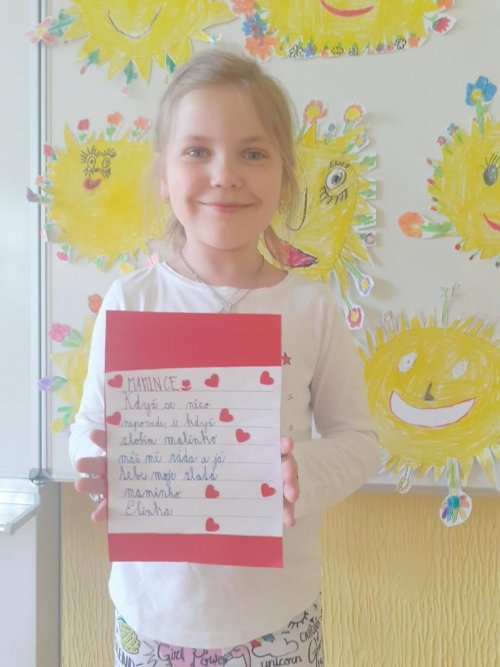 MAMINCE
Když se něco
nepovede i když
zlobím malinko
máš mě ráda a já
tebe moje zlatá
maminko
Elinka
Girl Power
unicorn